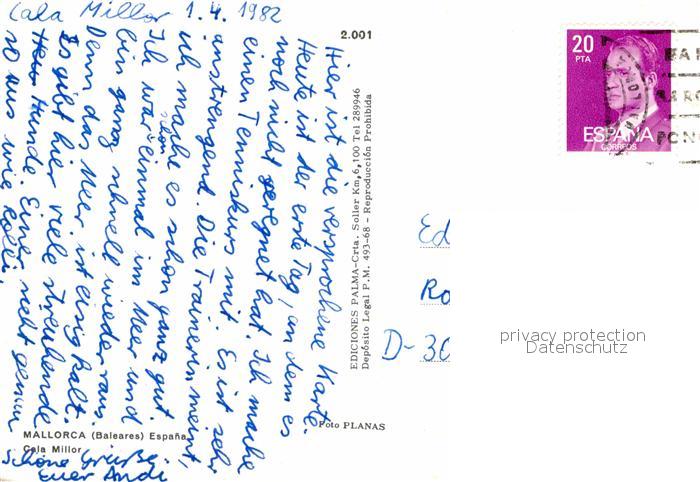 Cala Millor 1.4.1982
Hier ist die versprochene Karte.
Heute ist der erste Tag, an dem es
noch nicht geregnet hat. Ich mache
einen Tenniskurs mit. Es ist sehr
anstrengend. Die Trainerin meint,
ich mache es schon ganz gut.
Ich war schon einmal im Meer und
bin ganz schnell wieder raus.
Denn das Meer ist eisig kalt.
Es gibt hier viele streunende
Hunde. Einer sieht genau
so aus wie
Schöne Grüße
Euer Andi
2.001
EDICIONES PALMA-Crta. Soller Km,6,100 Tel 289946
Depósito Legal P.M. 493-68 - Reproducción Prohibida
Foto PLANAS
MALLORCA (Baleares) España
Cala Millor
20
PTA
ESPAÑA
CORREOS
Ed
Ro
D-30
privacy protection
Datenschutz